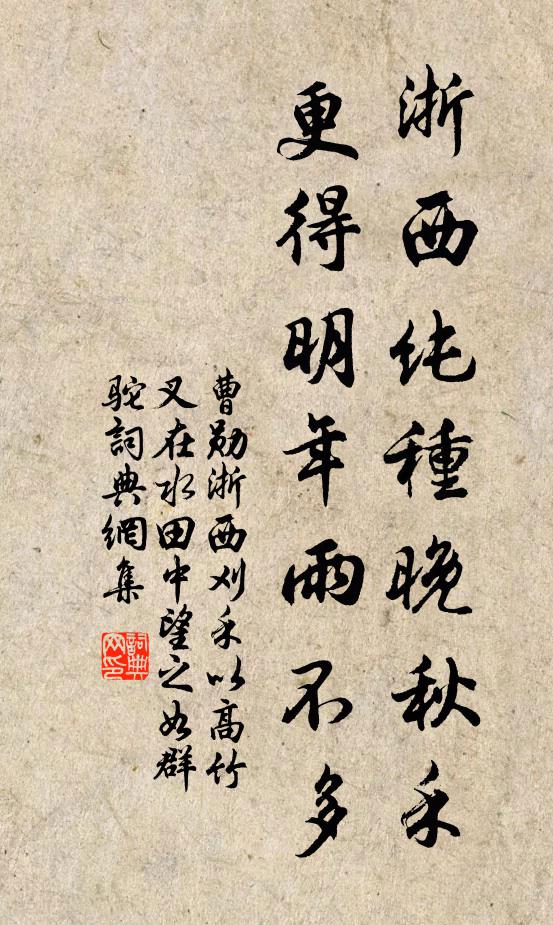 浙西純種晚秋禾
更得明年雨不多
曹勛浙西刈禾以高竹
叉在水田中望之如群
駝詞典網集
詞典网印